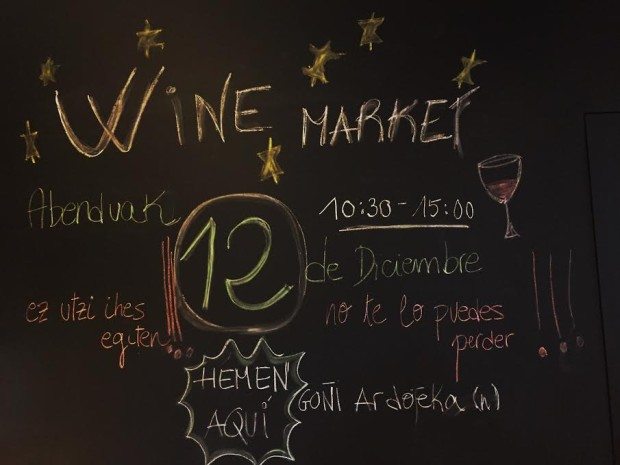 WiNE MARKET
Abenduak 12 de Diciembre
10:30-15:00
ez utzi ihes egiten!!!
no te lo puedes perder!!!
HEMEN
AQUÍ
GOÑI Ardoteka (n)